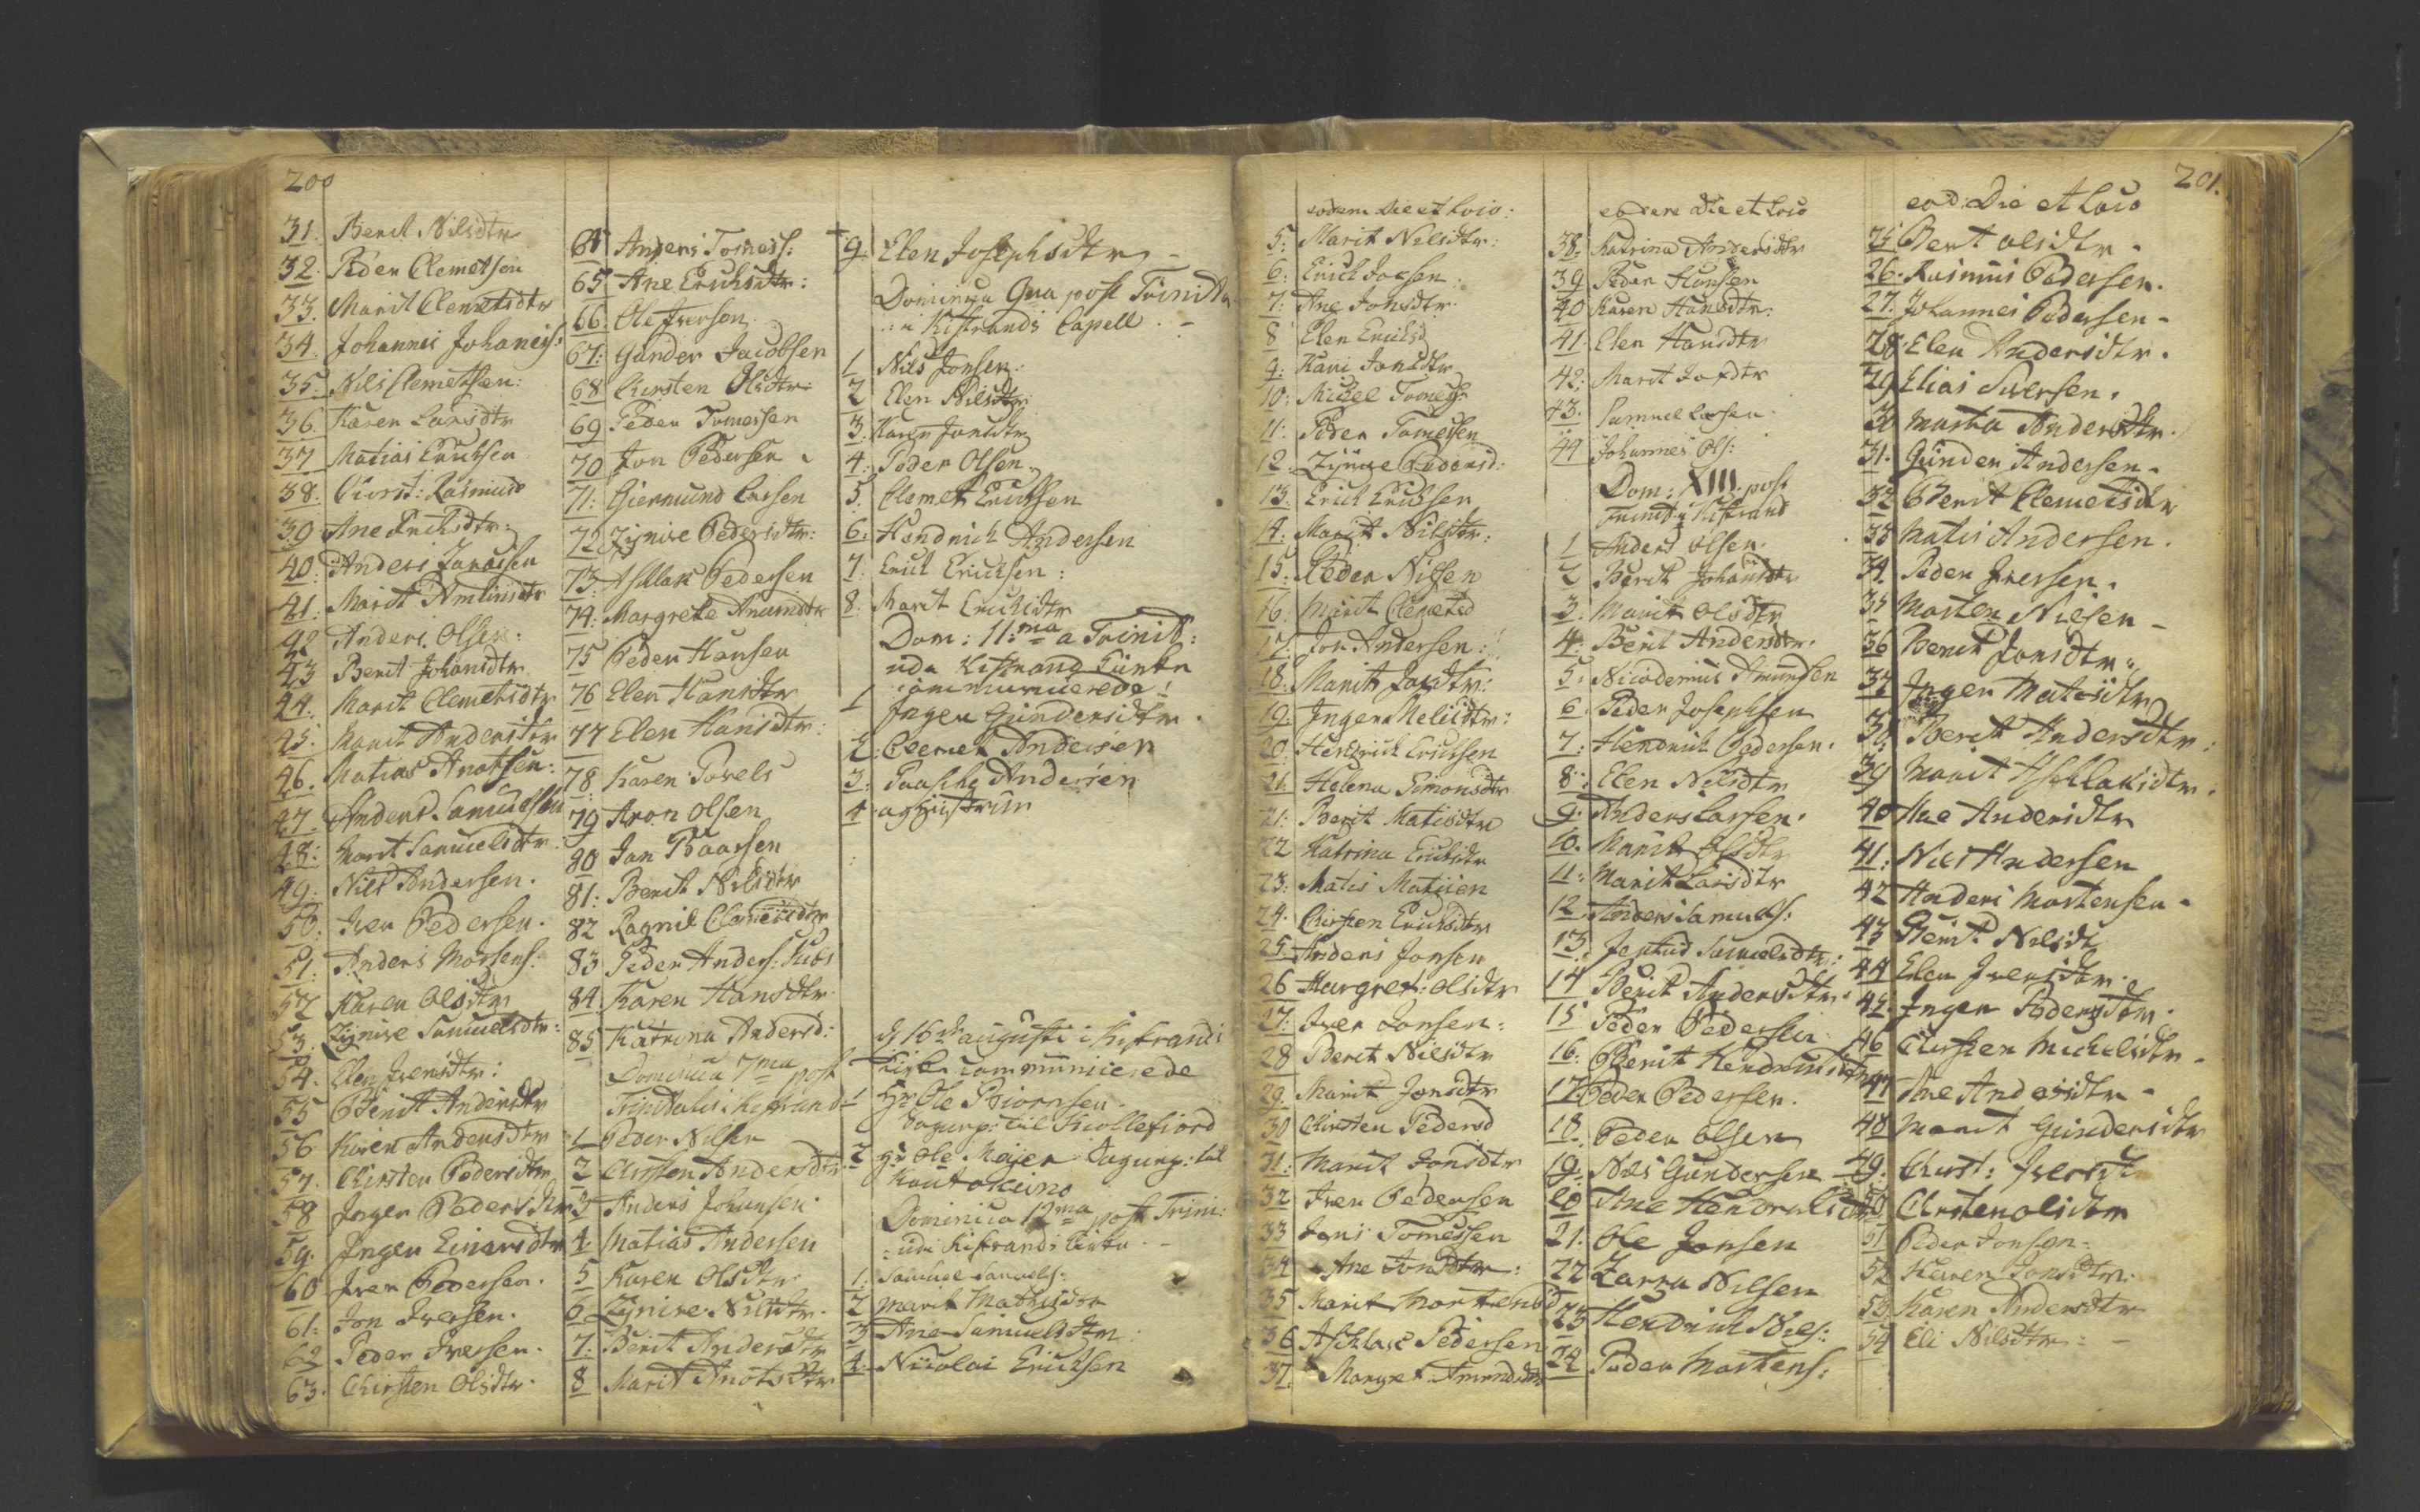 200
31. Berit Nilsdtr
32. Peder Clemetson
33. Marit Clemetsdtr
34. Johannes Johanes:
35. Nils Clemetsen:
36. Karen Larsdtr
37 Matias Erichsen
38. Kirst: Rasmusd
39 Ane Erichsdtr:
40. Anders
41. Marit
42 Anders Olsen:
43 Berit Johansdtr
44. Marit Clemetsdtr
45. Marit Andersdtr
46. Matias Anotsen:
47. Anders Samuelsen
48: Marit Samuelsdtr
49. Nils Andersen.
50. Iver Pedersen.
51. Anders Mossens:
52 Karen Olsdtr
53. Zynive Samuelsdtr:
54. Elen Iversdtr:
55 Berit Andersdtr
56 Karen Andersdtr
57. Chirsten Pedersdtr
58 Inger Pedersdtr
59. Inger Einersdtr
60 Iver Pedersen.
61: Jon Iversen.
62 Peder Iversen.
63. Chirsten Olsdtr.
64 Anders Tomess:
65 Ane Erichsdtr:
66. Ole Iverson
67: Gunder Jacobsen
68 Chirsten Olsdtr:
69 Peder Tomessen
70 Jon Pedersen
71: Giermund Larsen
72 Zynive Pedersdtr:
73. Aschlak Pedersen
74. Margrete Amundtr
75 Peder Hansen
76 Elen Hansdtr
77 Elen Hansdtr:
78. Karen Powels
79 Aron Olsen
80 Jan Baarsen
81: Berit Nilsdtr
82 Ragnil Clemetsdtr
83 Peder Anders: Kubs
84. Karen Hansdtr
85 Katrina Andersd:
Dominica 7ma post
Trinitatis i Kistrand
1 Peder Nilsen
2 Chirsten Andersdtr
3 Anders Johansen
4 Matias Andersen
5 Karen Olsdtr
6 Zynive Nilsdtr.
7. Berit Andersdtr
8 Marit Anotsdtr
9. Elen Josephsdtr
Dominica 9na post Trinita
i Kistrands Capell
1 Nils Jonsen.
2 Elen Nilsdtr
3. Karen Jonsdtr
4. Peder Olsen.
5. Clemet Erichsen
6. Hendrich Andersen
7. Erich Erichsen:
8. Marit Erichsdtr
Dom: 11:ma a Trinit:
udi Kistrand Kirke
communicerede:
1 Inger Gundersdtr.
2: Clemet Andersen
3: Paasche Andersen
4 og Hustrue
d 16de augusti i Kistrands
Kirke communicerede
1 Hr Ole Biørnsen
til Kiollefiord
2 Hr Ole Majer til
Kautokeino
Dominica 12ma post Trini:
udi Kistrands Kirke
1. Samuel Samuels:
2 Marit Mathisdtr
3 Ane Samuelsdtr
4. Nicolai Erichsen
201.
eodem Die et Loco:
5: Marit Nilsdtr:
6. Erich Joesen.
7: Ane Jonsdtr.
8 Elen Erichsd
9: Kari Jonsdtr
10: Michel Tomess:
11: Peder Tomessen
12. Zynive Pedersd:
13. Erich Erichsen
14: Marit Nilsdtr:
15. Peder Nilsen
16. Marit Clemetsd
17. Jon Andersen:
18. Marit Jonsdtr:
19. Inger Nelisdtr:
20. Hendrich Erichsen
21: Helena Simonsdtr
21: Berit Matisdtr
22 Katrina Erichsdtr
23: Matis Matisen
24. Chirsten Erichsdtr
25. Anders Jonsen
26 Margret: Olsdtr
27: Iver Jonsen:
28 Berit Nilsdtr
29. Marit Jonsdtr
30 Chirsten Pedersd
31: Marit Jonsdtr
32 Iver Pedersen
33 Jens Tomessen
34 Ane Jonsdtr:
35 Marit Mortensd
36 Aschlac Pedersen
37 Margret Amundsdtr
eodem Die et Loco
38. Katrina Andersdtr
39 Peder Hansen
40 Karen Hansdtr:
41. Elen Hansdtr
42: Marit Josdtr
43. Samuel Larsen:
44 Johannes Ols:
Dom: XIII. post
Trinit: i Kistrand
1 Anders Olsen.
2 Berit Johansdtr
3. Marit Olsdtr
4. Berit Andersdtr.
5. Nicodemus Amundsen
6. Peder Josephsen
7: Hendrich Pedersen.
8: Elen Nilsdtr
9. Anders Larsen.
10. Marit Olsdtr
11. Marit Larsdtr
12. Anders Samuels:
13. Samuelsdtr:
14 Berit Andersdtr.
15 Peder Pedersen
16: Berit Hendrichsdtr
17. Peder Pedersen.
18. Peder Olsen
19: Nils Gundersen
20 Ane Hendrichsdtr
21. Ole Jonsen
22 Zarra Nilsen
23 Hendrich Nils:
24 Peder Mortens:
eod: Die et Loco
25 Berit Olsdtr.
26. Rasmus Pedersen.
27. Johannes Pedersen
28. Elen Andersdtr.
29 Elias Sversen.
30 Marta Andersdtr.
31. Gunder Andersen
32 Berit Clemetsdtr
33 Matis Andersen.
34. Peder Iversen.
35 Morten Nilsen
36 Berit Jonsdtr.
37 Inger Matisdtr
38 Berit Andersdtr:
39 Marit Aschlaksdtr.
40 Ane Andersdtr
41. Nils Andersen
42 Anders Mortensen
43 Berit Nilsdt
44 Elen Iversdtr.
45. Inger Pedersdtr.
46 Chirsten Michelsdtr
47 Ane Andersdtr
48 Marit Gundersdtr
49. Chirst: Iversdt
50 Chirsten Olsdtr
51 Peder Jonsen.
52 Karen Jonsdtr.
53 Karen Andersdtr
54 Eli Nilsdtr.